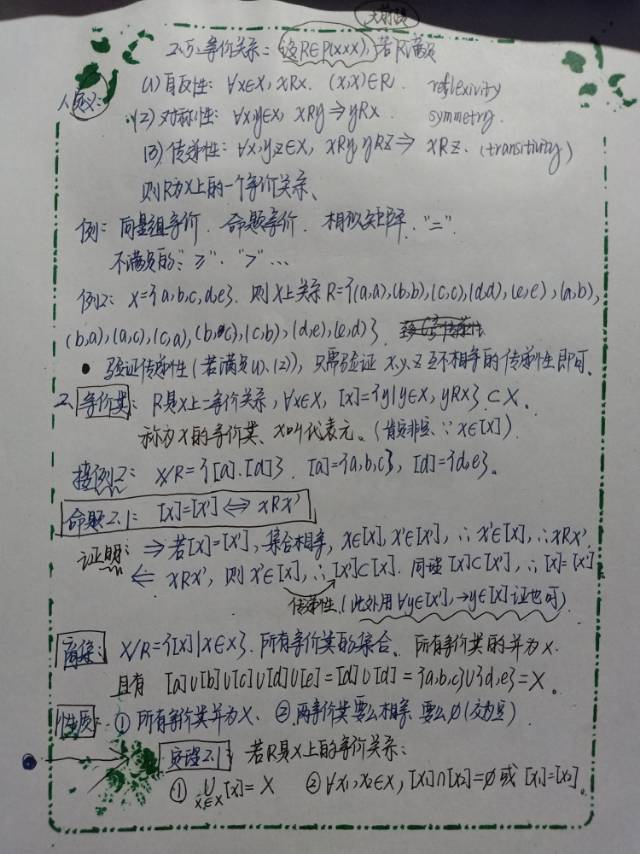 大前提
2.5.等价关系: 设R∈P(X×X), 若R满足
1.定义:
(1) 自反性: ∀x∈X, xRx. (x,x)∈R. reflexivity
(2) 对称性: ∀x,y∈X, xRy⇒yRx. symmetry.
(3) 传递性: ∀x,y,z∈X, xRy,yRz⇒ xRz. (transitivity)
则R为X上的一个等价关系、
例: 向量组等价. 命题等价. 相似矩阵. "=".
不满足的: "≥". ">"...
例2: X={a,b,c,d,e}. 则X上关系R={(a,a),(b,b),(c,c),(d,d),(e,e),(a,b),
(b,a),(a,c),(c,a),(b,c),(c,b),(d,e),(e,d)}.
• 验证传递性(若满足(1)、(2)), 只需验证x,y,z互不相等的传递性即可.
2. 等价类: R是X上一等价关系, ∀x∈X, [x]={y|y∈X, yRx}⊂X.
称为x的等价类、x叫代表元。(肯定非空 ∵x∈[x])
接例2: X/R={[a].[d]}. [a]={a,b,c}, [d]={d,e}。
命题2.1: [x]=[x']⇔xRx'
证明: ⇒若[x]=[x'], 集合相等, x∈[x], x'∈[x'], ∴x'∈[x], ∴xRx'.
⇐ xRx', 则x'∈[x], ∴[x']⊂[x]. 同理[x]⊂[x'], ∴[x]=[x']
传递性. (此外用∀y∈[x'],→y∈[x]证也可)
商集: X/R={[x]|x∈X}. 所有等价类的集合。所有等价类的并为X.
且有 [a]∪[b]∪[c]∪[d]∪[e]=[a]∪[d]={a,b,c}∪{d,e}=X。
性质: ①所有等价类并为X、②两等价类要么相等 要么∅(交为空)
定理2.1: 若R是X上的等价关系:
① ∪[x]=X ② ∀x₁,x₂∈X, [x₁]∩[x₂]=∅或[x₁]=[x₂]。
x∈X